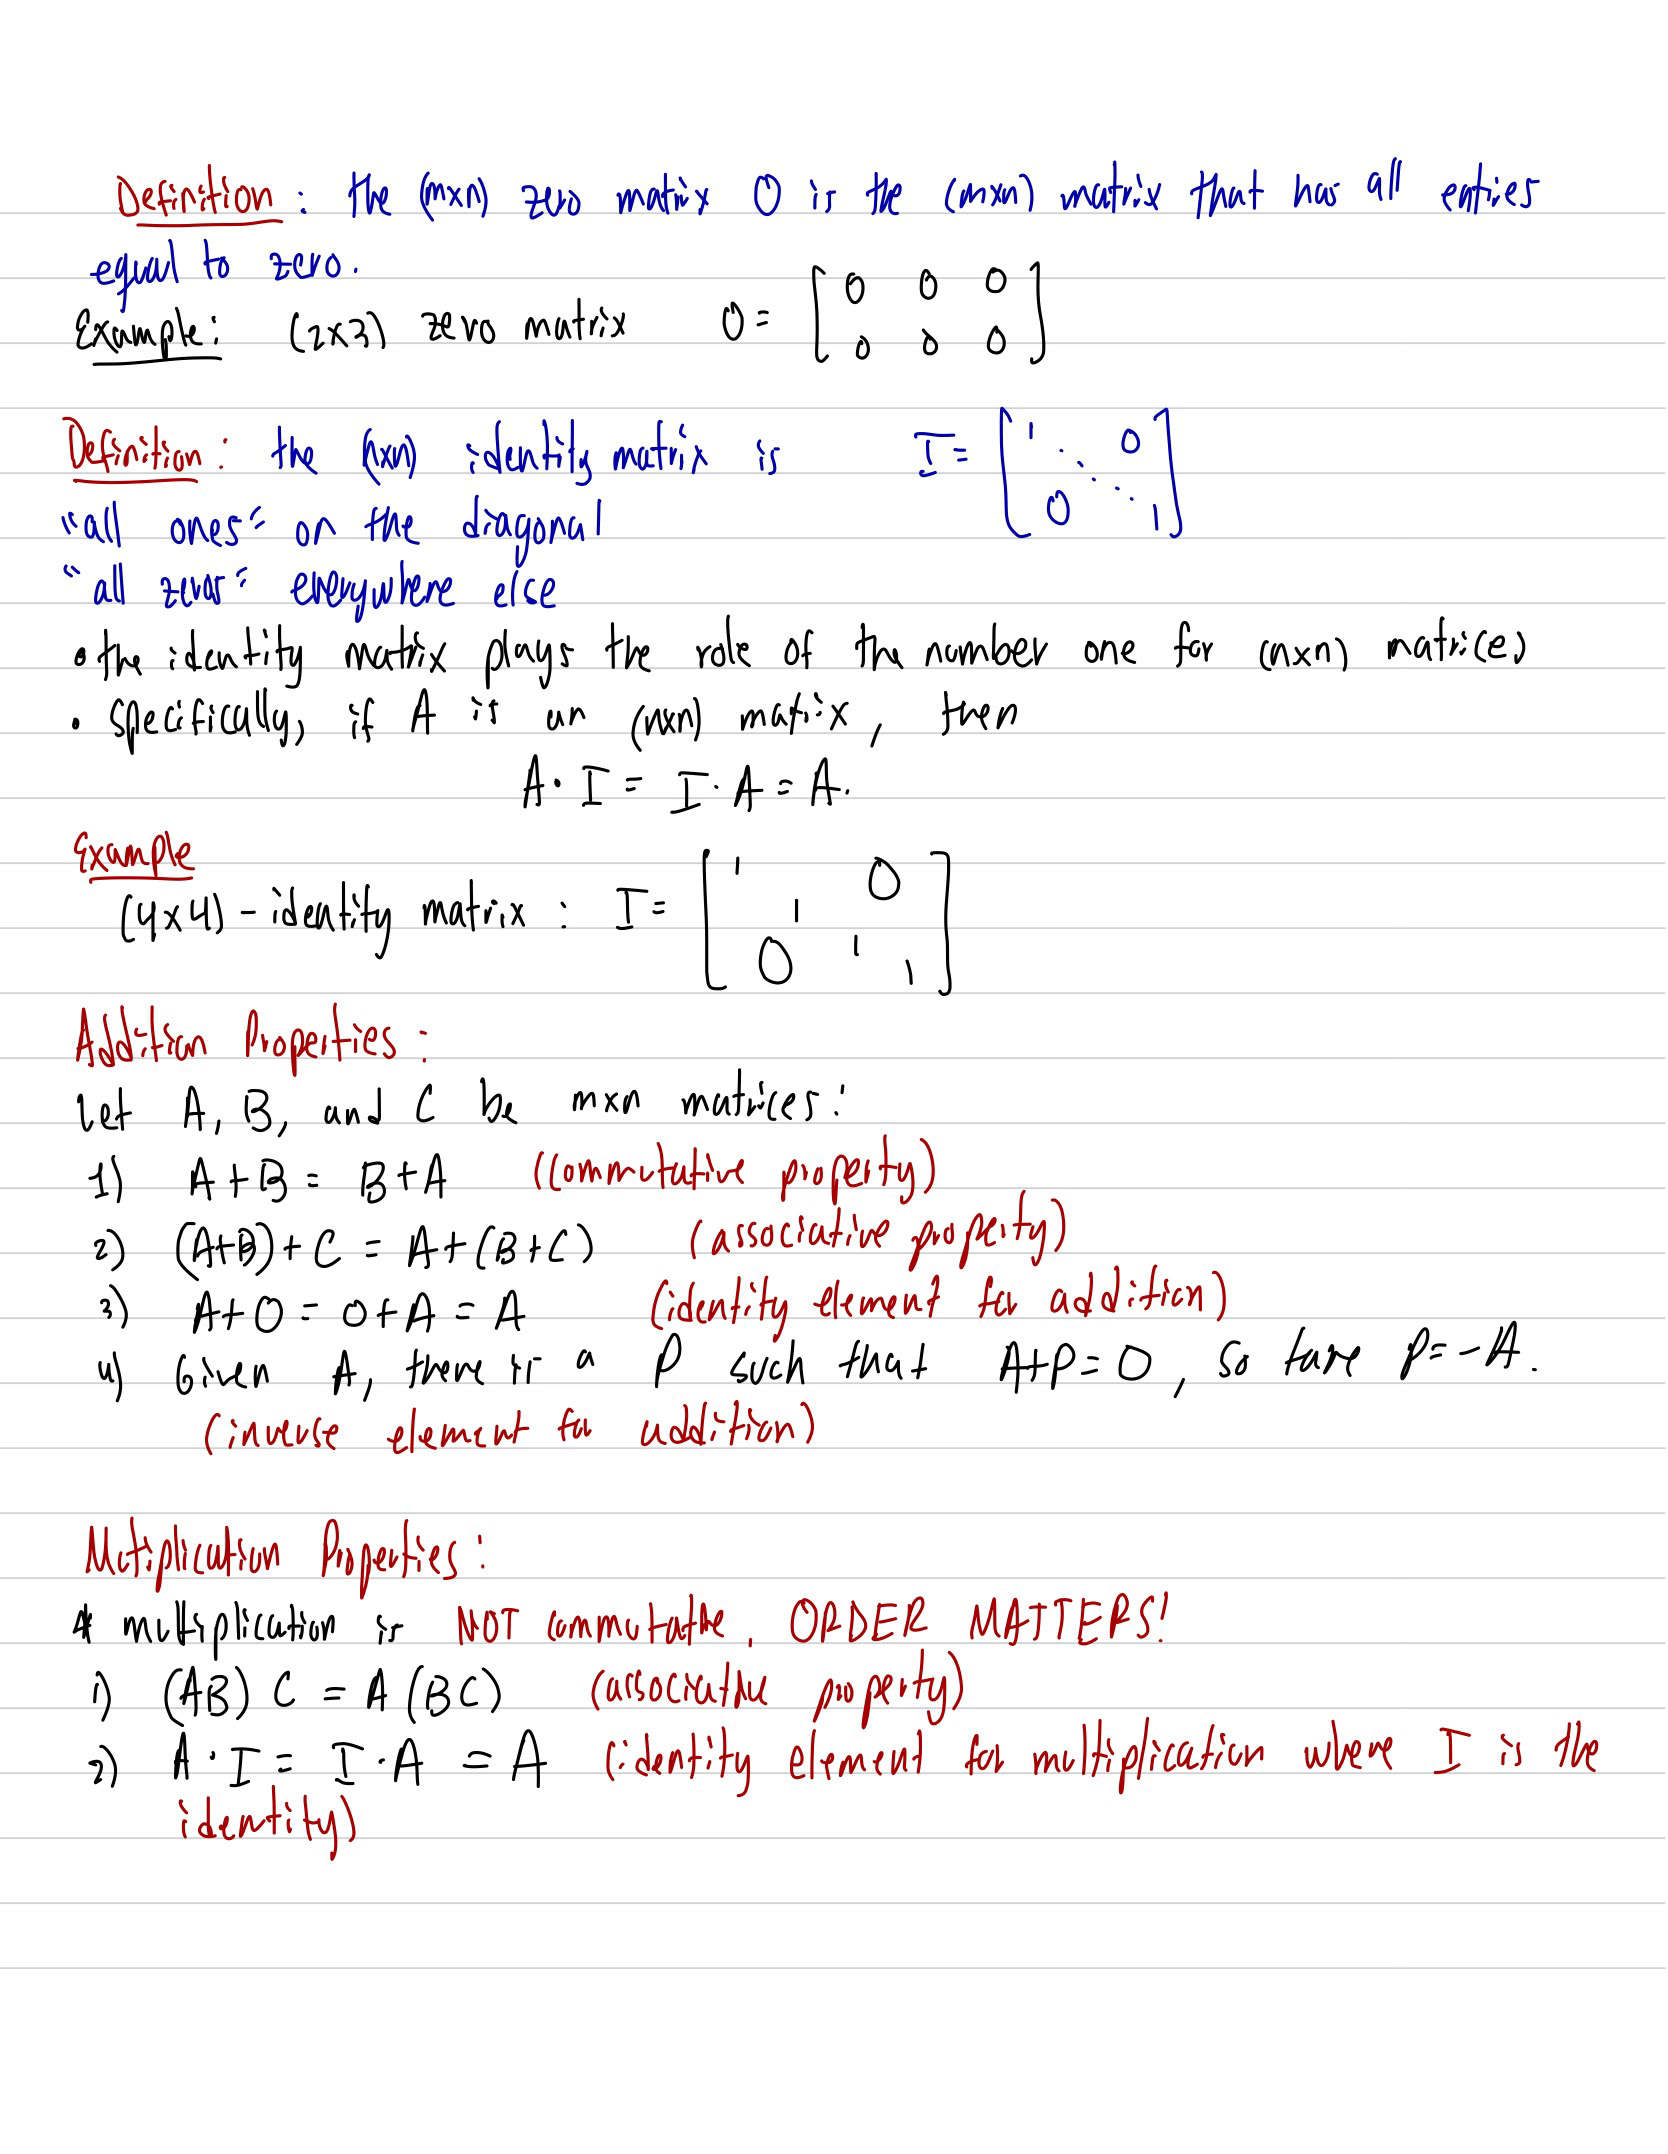 Definition: the (mxn) zero matrix O is the (mxn) matrix that has all enties
equal to zero.
Example: (2x3) zero matrix O = [ 0 0 0
0 0 0 ]
Definition: the (nxn) identity matrix is I = [ 1 ⋱ 0
0 1 ]
"all ones" on the diagonal
"all zeros" everywhere else
• the identity matrix plays the role of the number one for (nxn) matrices
• specifically, if A is an (nxn) matrix, then
A · I = I · A = A.
Example
(4x4) - identity matrix : I = [ 1 0
1
0 1
1 ]
Addition Properties:
Let A, B, and C be mxn matrices:
1) A + B = B + A (commutative property)
2) (A+B) + C = A + (B+C) (associative property)
3) A + O = O + A = A (identity element for addition)
4) Given A, there is a P such that A+P = O, so take P = -A.
(inverse element for addition)
Mutiplication Properties:
* multiplication is NOT commutative. ORDER MATTERS!
1) (AB) C = A (BC) (associative property)
2) A · I = I · A = A (identity element for multiplication where I is the
identity)